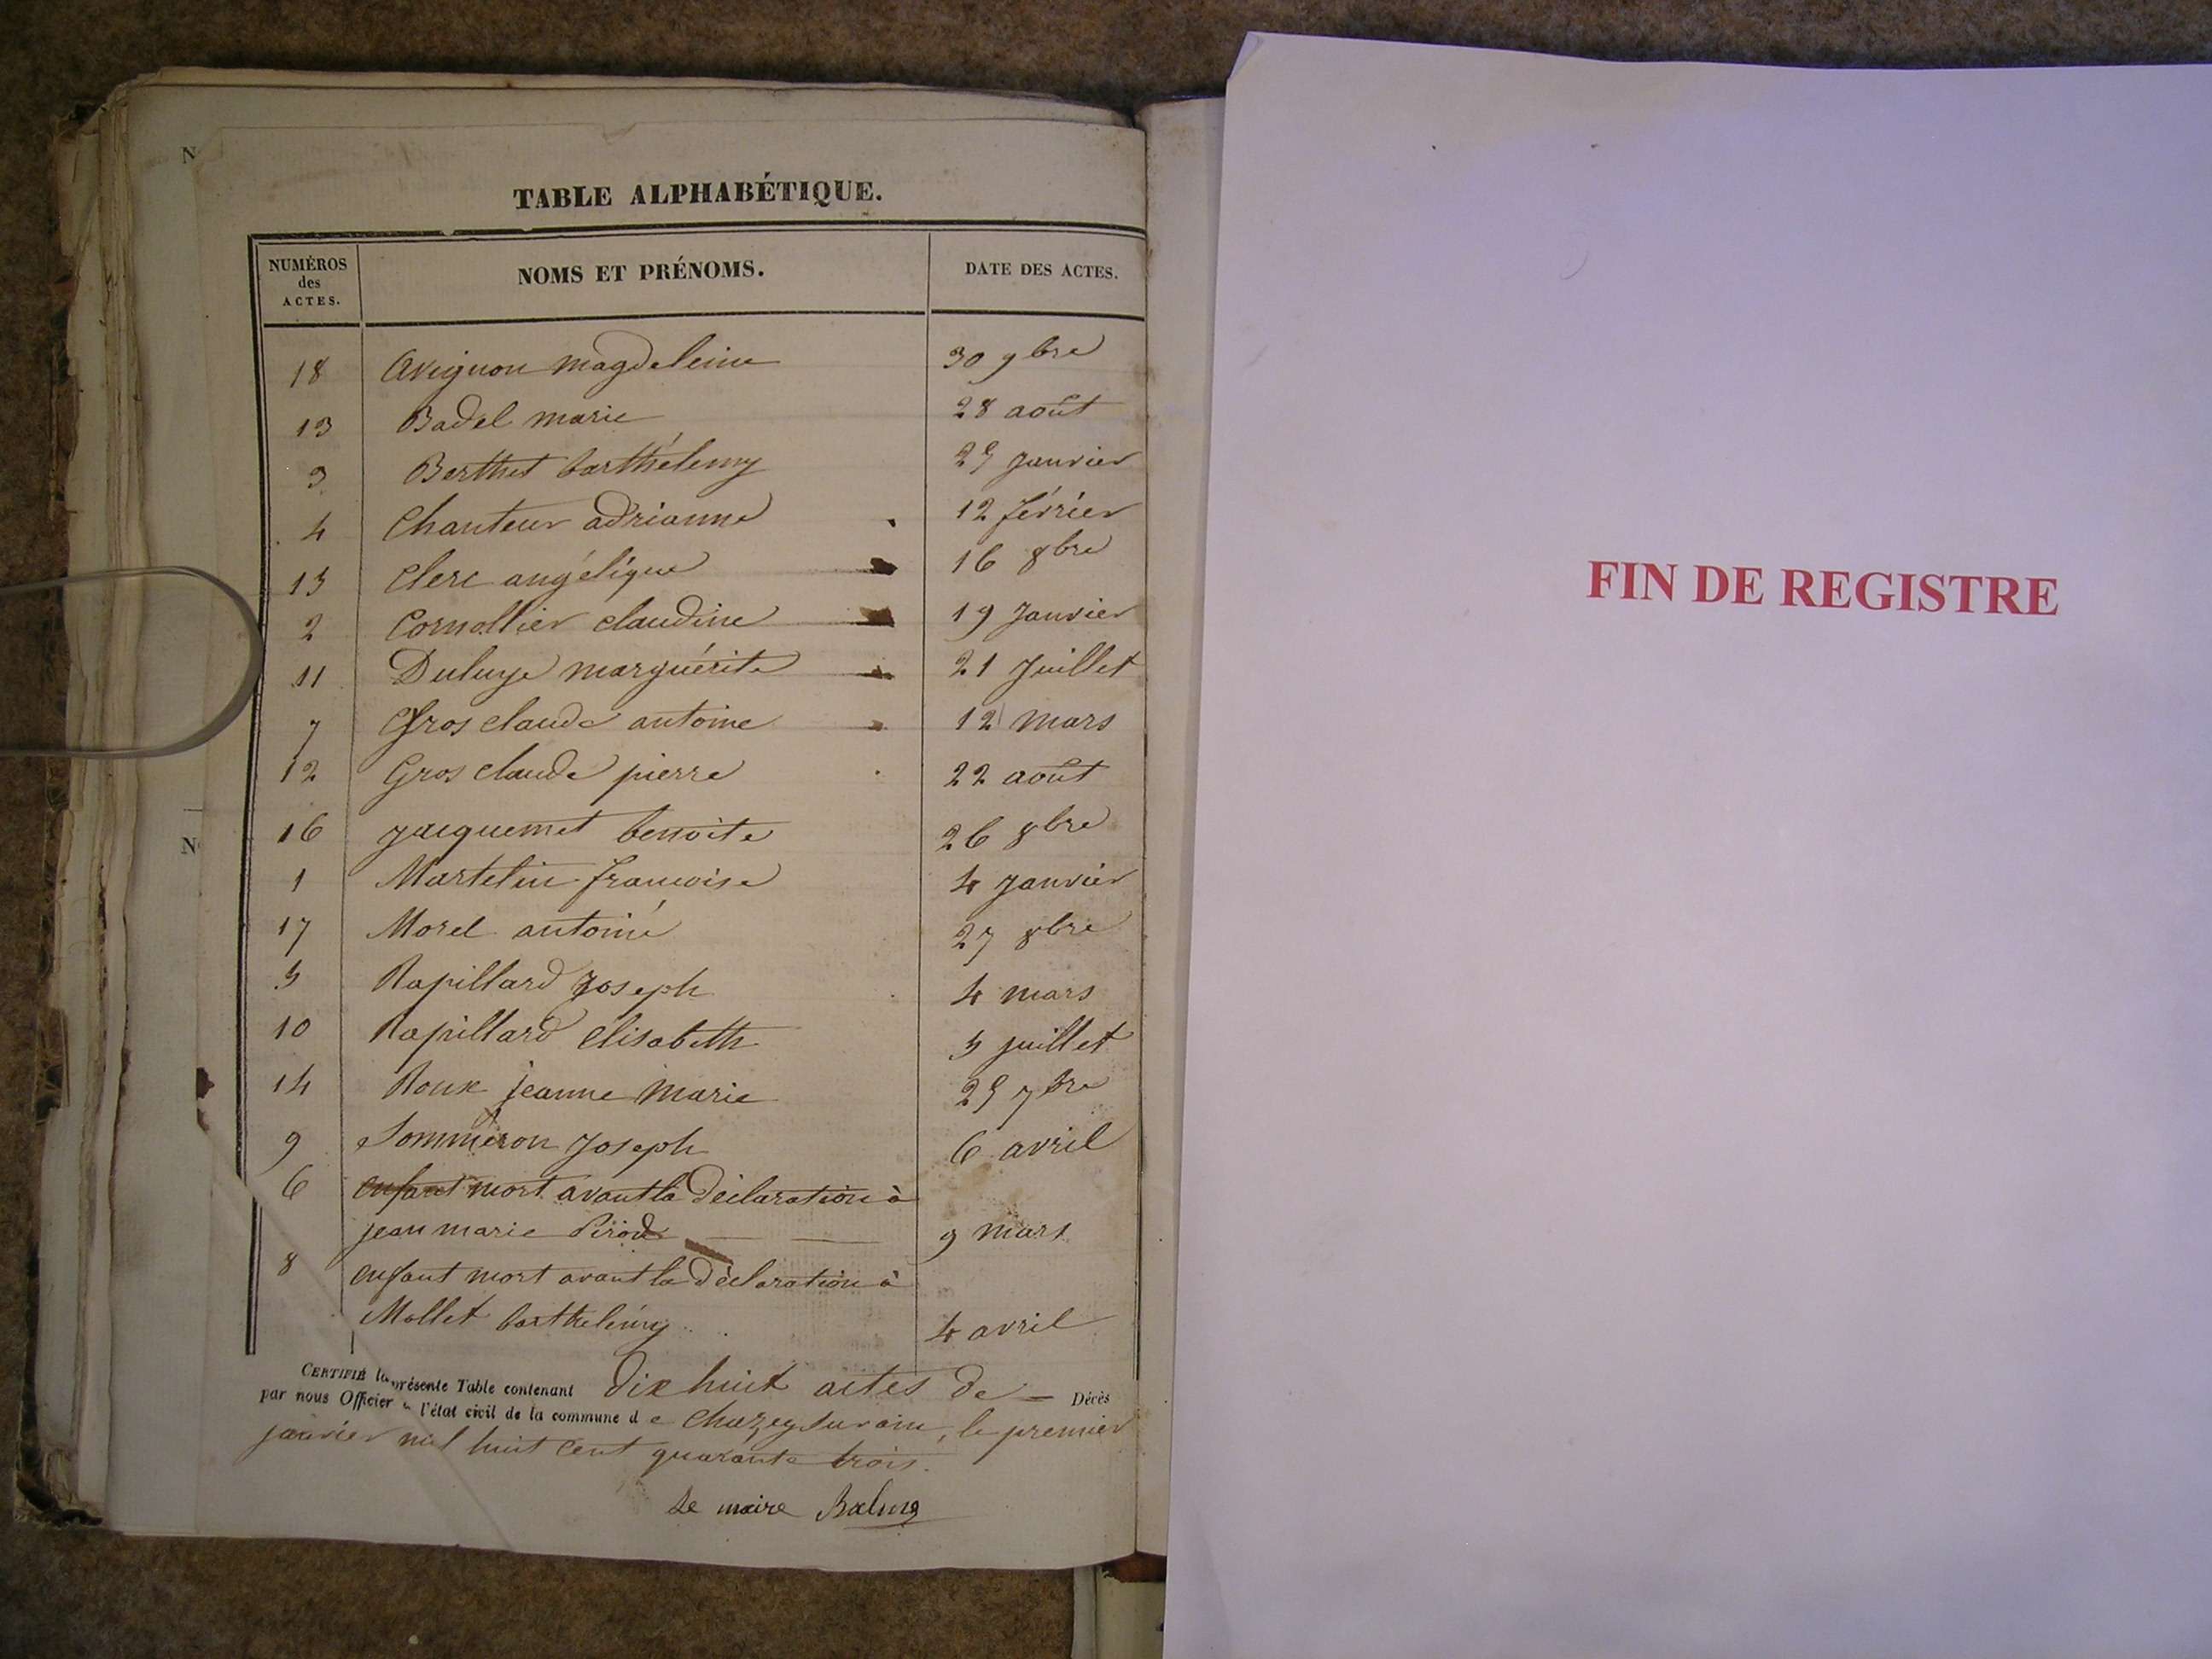 N
TABLE ALPHABÉTIQUE.
NUMÉROS des ACTES. NOMS ET PRÉNOMS. DATE DES ACTES.
18 Avignon magdeleine 30 9bre
13 Badel marie 28 août
3 Berthet barthélemy 25 Janvier
4 Chanteur adrianne 12 février
15 Clerc angélique 16 8bre
2 Cornollier claudine 19 Janvier
11 marguérite 21 Juillet
7 Gros claude antoine 12 mars
12 Gros claude pierre 22 août
16 jacquemet benoite 26 8bre
1 Martelin françoise 4 Janvier
17 Morel antoine 27 8bre
5 Rapillard Joseph 4 mars
10 Rapillard élisabeth 5 juillet
14 Roux jeanne Marie 25 7bre
9 Sommeron Joseph 6 avril
6 enfant mort avant la déclaration à
jean marie Pirod 9 mars
8 enfant mort avant la déclaration à
Mollet barthelémy 4 avril
N
CERTIFIÉ la présente Table contenant dix huit actes de Décès
par nous Officier l'état civil de la commune de Chazey sur ain, le premier
janvier mil huit cent quarante trois.
Le maire
FIN DE REGISTRE